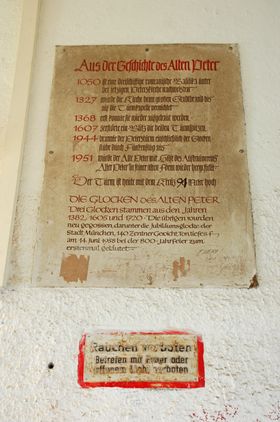 Aus der Geschichte des Alten Peter
1050 ist eine dreischiffige romanische Basilika unter
der jetzigen Peterskirche nachweisbar
1327 wurde die Kirche beim großen Stadtbrand bis
auf die Turmkapelle vernichtet
1368 erst konnte sie wieder aufgebaut werden
1607 zerstörte ein Blitz die beiden Turmspitzen
1944 brannte der Petersturm einschließlich der Glocken
stube durch
1951 wurde der Alte Peter mit Hilfe des
Alter Peter in seiner alten Form wieder hergestellt
Der Turm ist heute mit dem Kreuz 91 Meter hoch
DIE GLOCKEN DES ALTEN PETER
Drei Glocken stammen aus den Jahren
1382, 1605 und 1720. Die übrigen wurden
neu gegossen, darunter die Jubiläumsglocke der
Stadt München, 140 Zentner Gewicht, Ton tiefes F,
am 14. Juni 1958 bei der 800-Jahrfeier zum
erstenmal geläutet
Rauchen verboten
Betreten mit Feuer oder
offenem Licht verboten